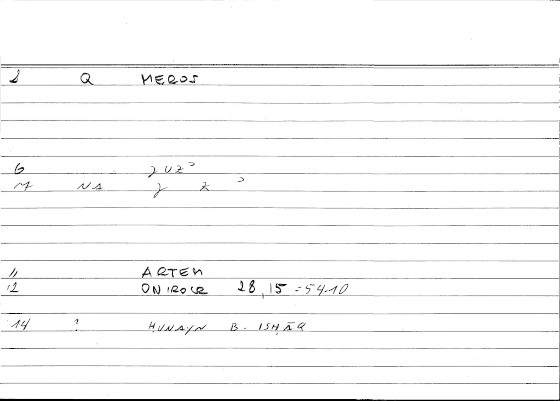 2 Q MEROS
6 ǧUZʾ
M NA ǧ Z ʾ
11 ARTEM
12 ONIROCR 28,15 = 54.10
14 ? ḤUNAYN B. ISḤĀQ